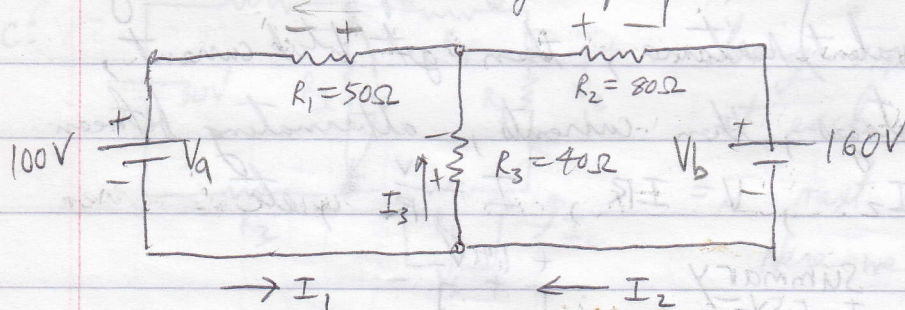 - +
+ -
R₁ = 50Ω
R₂ = 80Ω
+
100V
Va
-
-
+
R₃ = 40Ω
I₃
+
Vb
160V
-
→ I₁
← I₂